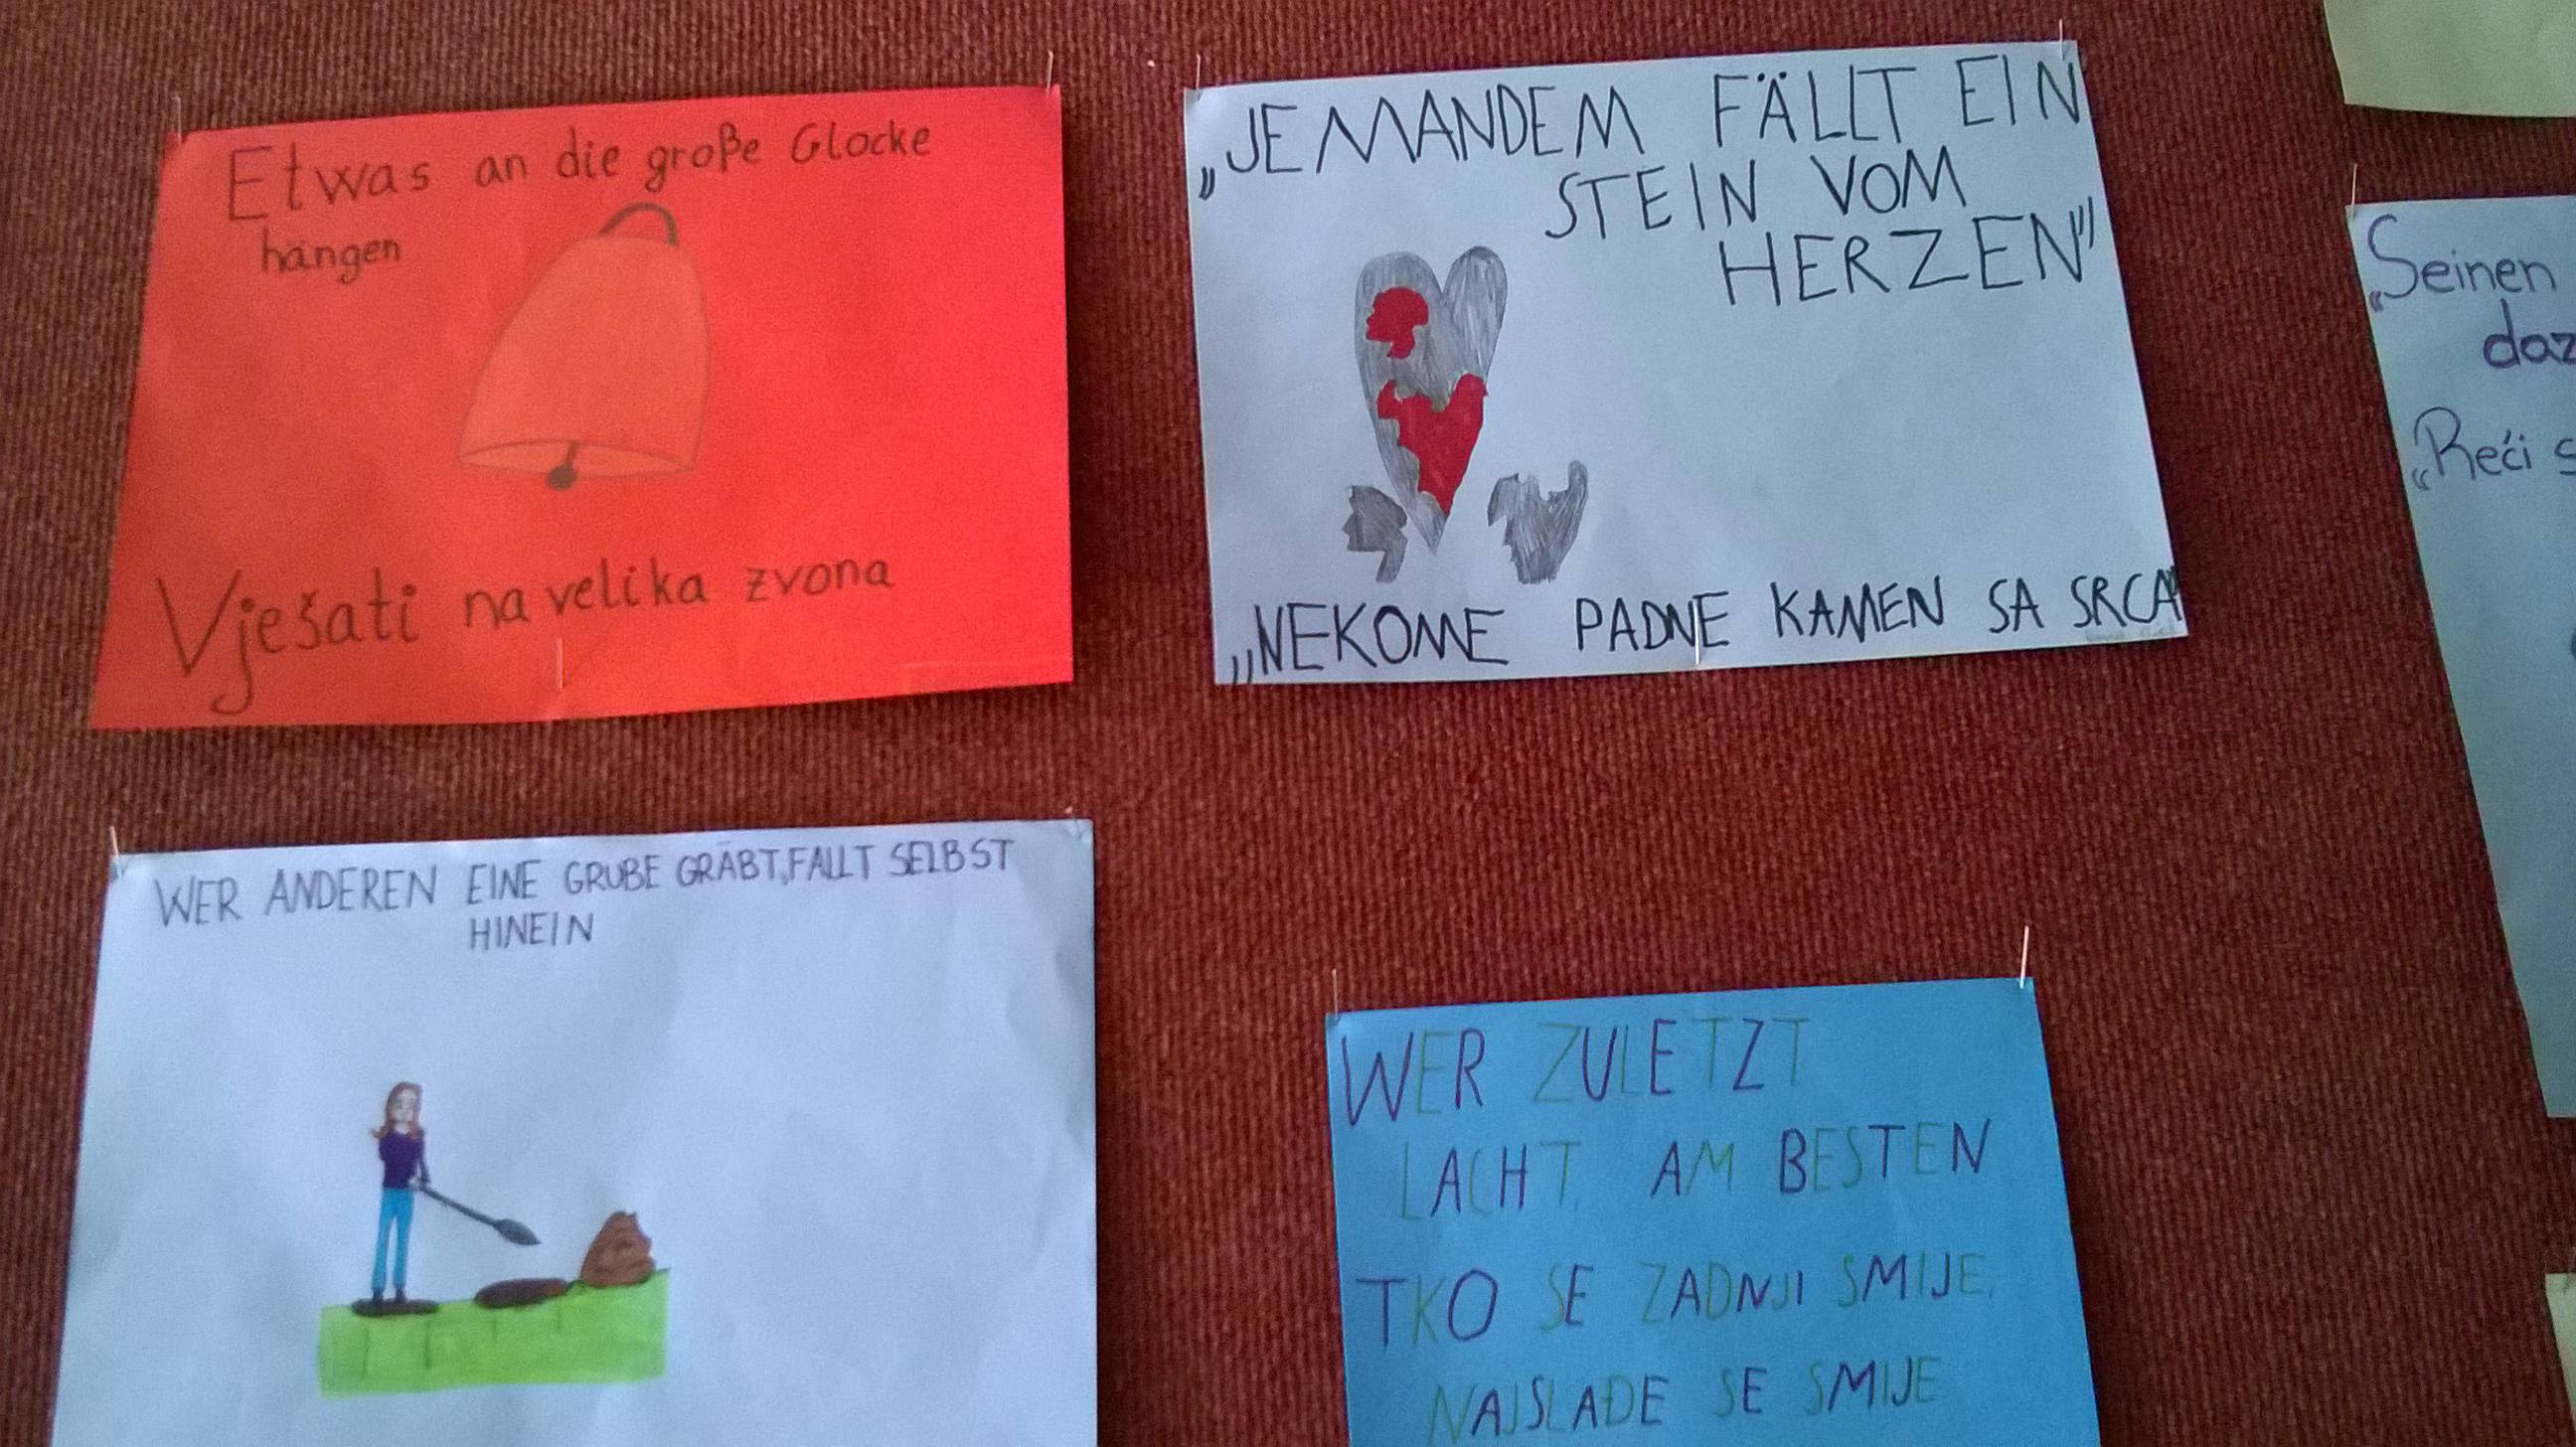 Etwas an die große Glocke
hängen
Vješati na velika zvona
„JEMANDEM FÄLLT EIN
STEIN VOM
HERZEN"
„NEKOME PADNE KAMEN SA SRCA"
„Seinen
„Reći
WER ANDEREN EINE GRUBE GRÄBT, FALLT SELBST
HINEIN
WER ZULETZT
LACHT, AM BESTEN
TKO SE ZADNJI SMIJE,
NAJSLAĐE SE SMIJE